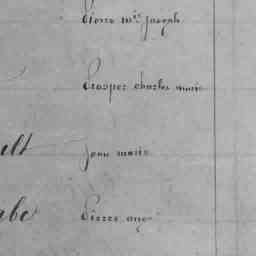 Pierre m.ie Joseph
Prosper charles marie
elt Jean marie
abe Pierre ange